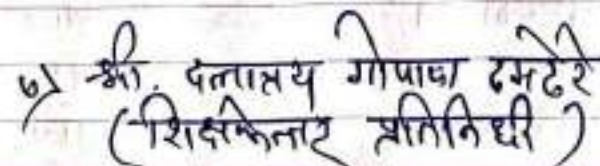 ७) श्री. दत्तात्रय गोपाळ ढमढेरे
(शिक्षकेत्तर प्रतिनिधी)